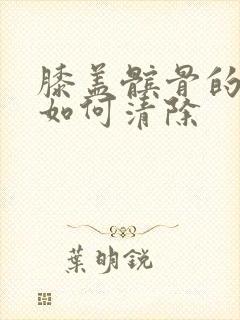 膝盖髌骨的
如何清除
葉明锐